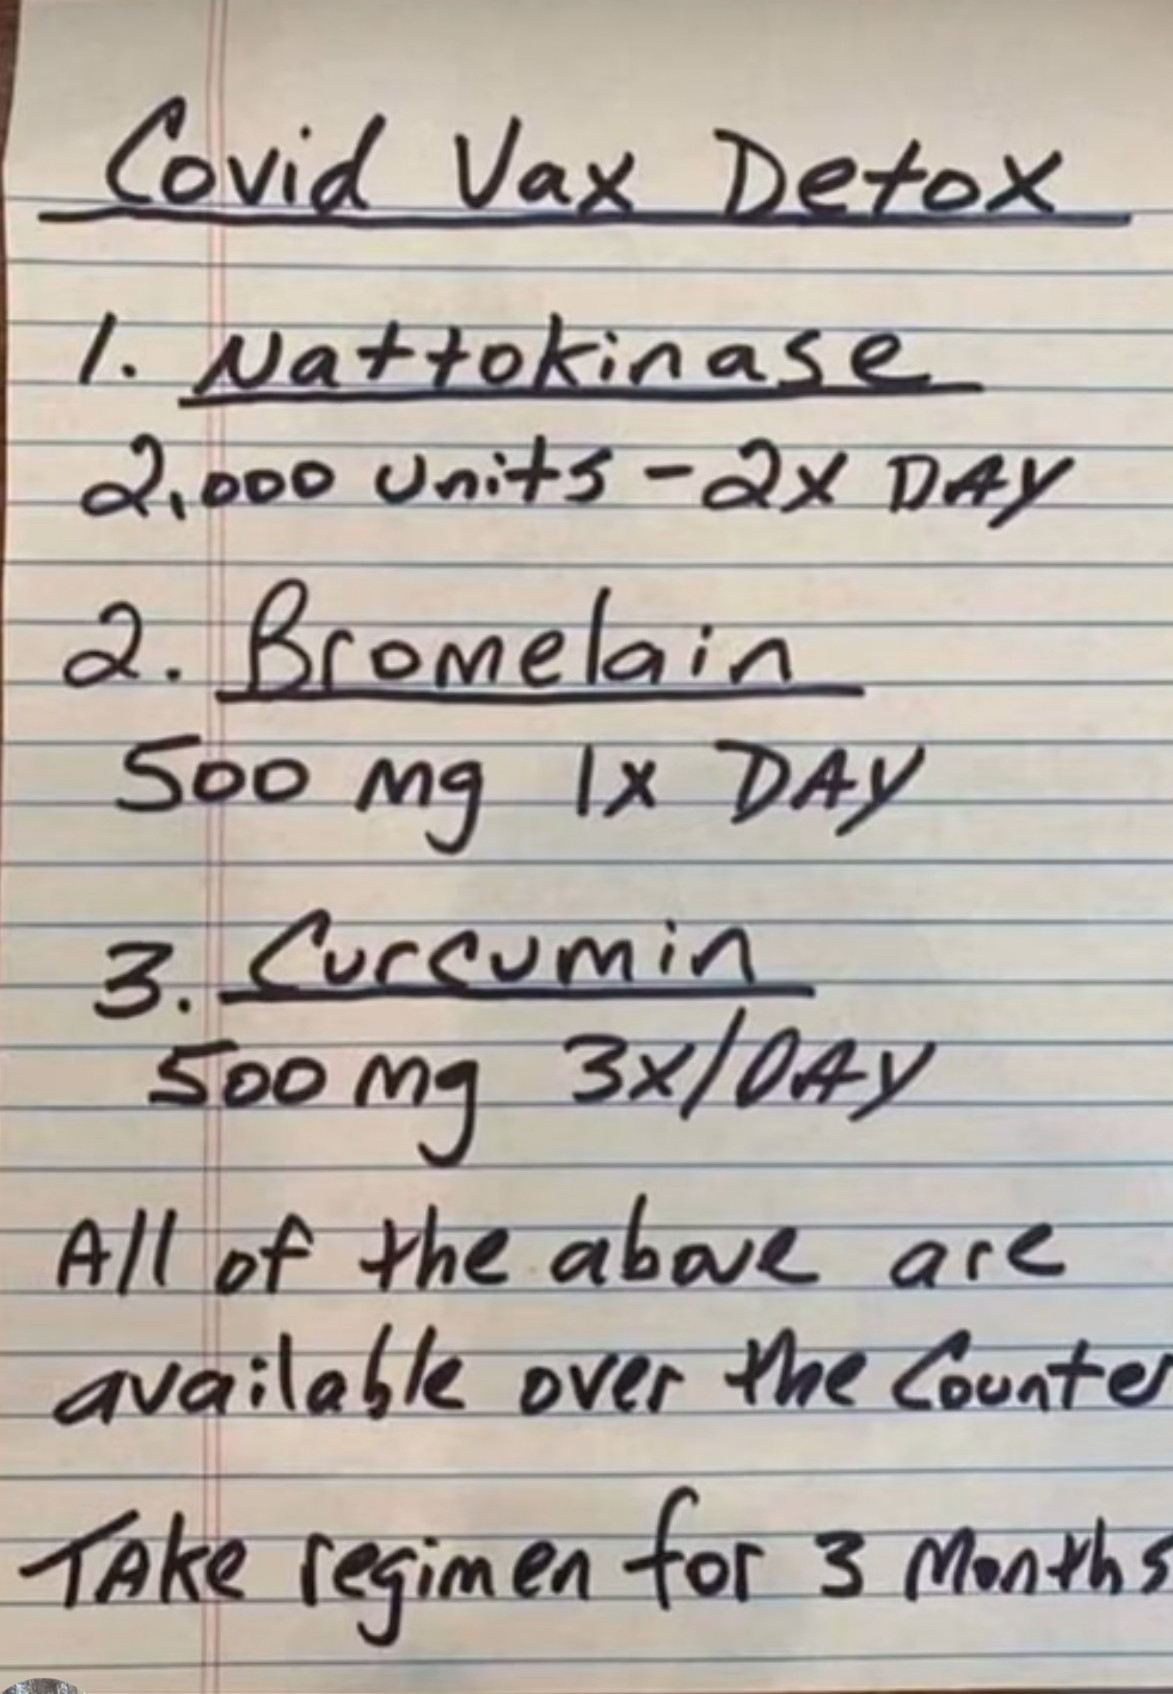 Covid Vax Detox
1. Nattokinase
2,000 units - 2x DAY
2. Bromelain
500 mg 1x DAY
3. Curcumin
500 mg 3x/DAY
All of the above are
available over the Counter
TAke regimen for 3 Months